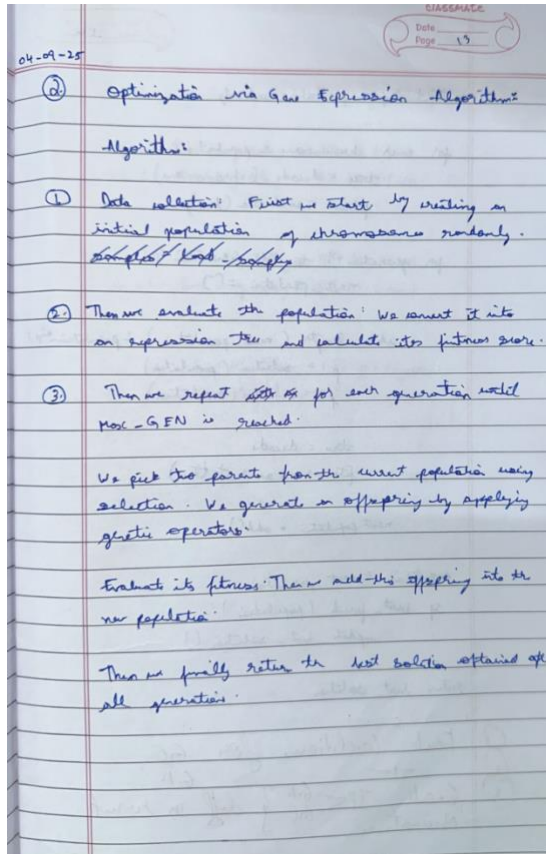 CLASSMATE
Date
Page 13
04-09-25
②. Optimization via Gene Expression Algorithm:
Algorithm:
① Data collection: First we start by creating an
initial population of chromosomes randomly.
②. Then we evaluate the population: We convert it into
an expression tree and calculate its fitness score.
③. Then we repeat for each generation until
Max-GEN is reached.
We pick two parents from the current population using
selection. We generate an offspring by applying
genetic operators.
Evaluate its fitness. Then we add this offspring into the
new population.
Then we finally return the best solution obtained after
all generation.